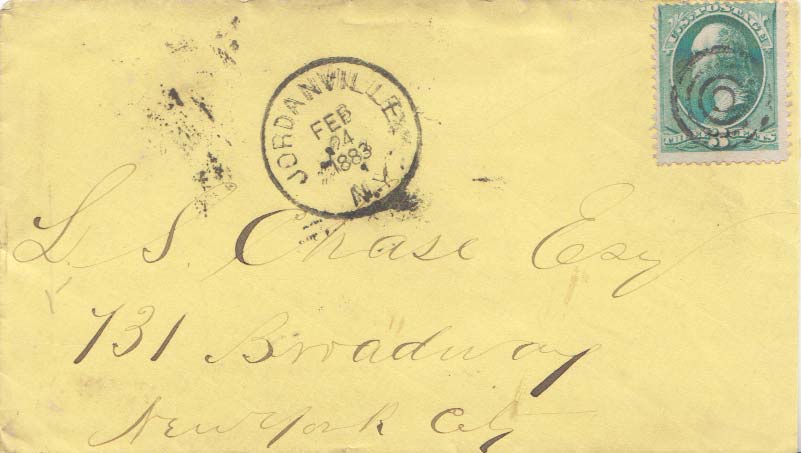 U.S. POSTAGE
THREE CENTS
3
JORDANVILLE
FEB
24
1883
N.Y.
L. S. Chase Esq
731 Broadway
New York City